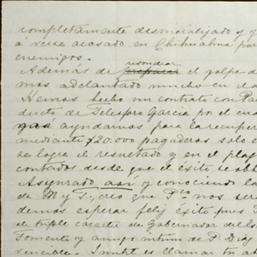 completamente desmoralizado y y
á verse acosado en Chihuahua por
enemigos.
Además de remediar el golpe d
mos adelantado mucho en el a
Hemos hecho un contrato con Pa
ducto de Telesforo Garcia por el cua
nos ayudamos para la recuper
mediante $20.000 pagaderos solo c
se logra el resultado y en el plaz
contados desde que el éxito se obt
Asegurado así y conociendo la
de M y S., creo que P nos ser
demos esperar feliz éxito pues T
el triple carácter de Gobernador del
Fomento y amigo íntimo de P. Diaz
es llamar tu at